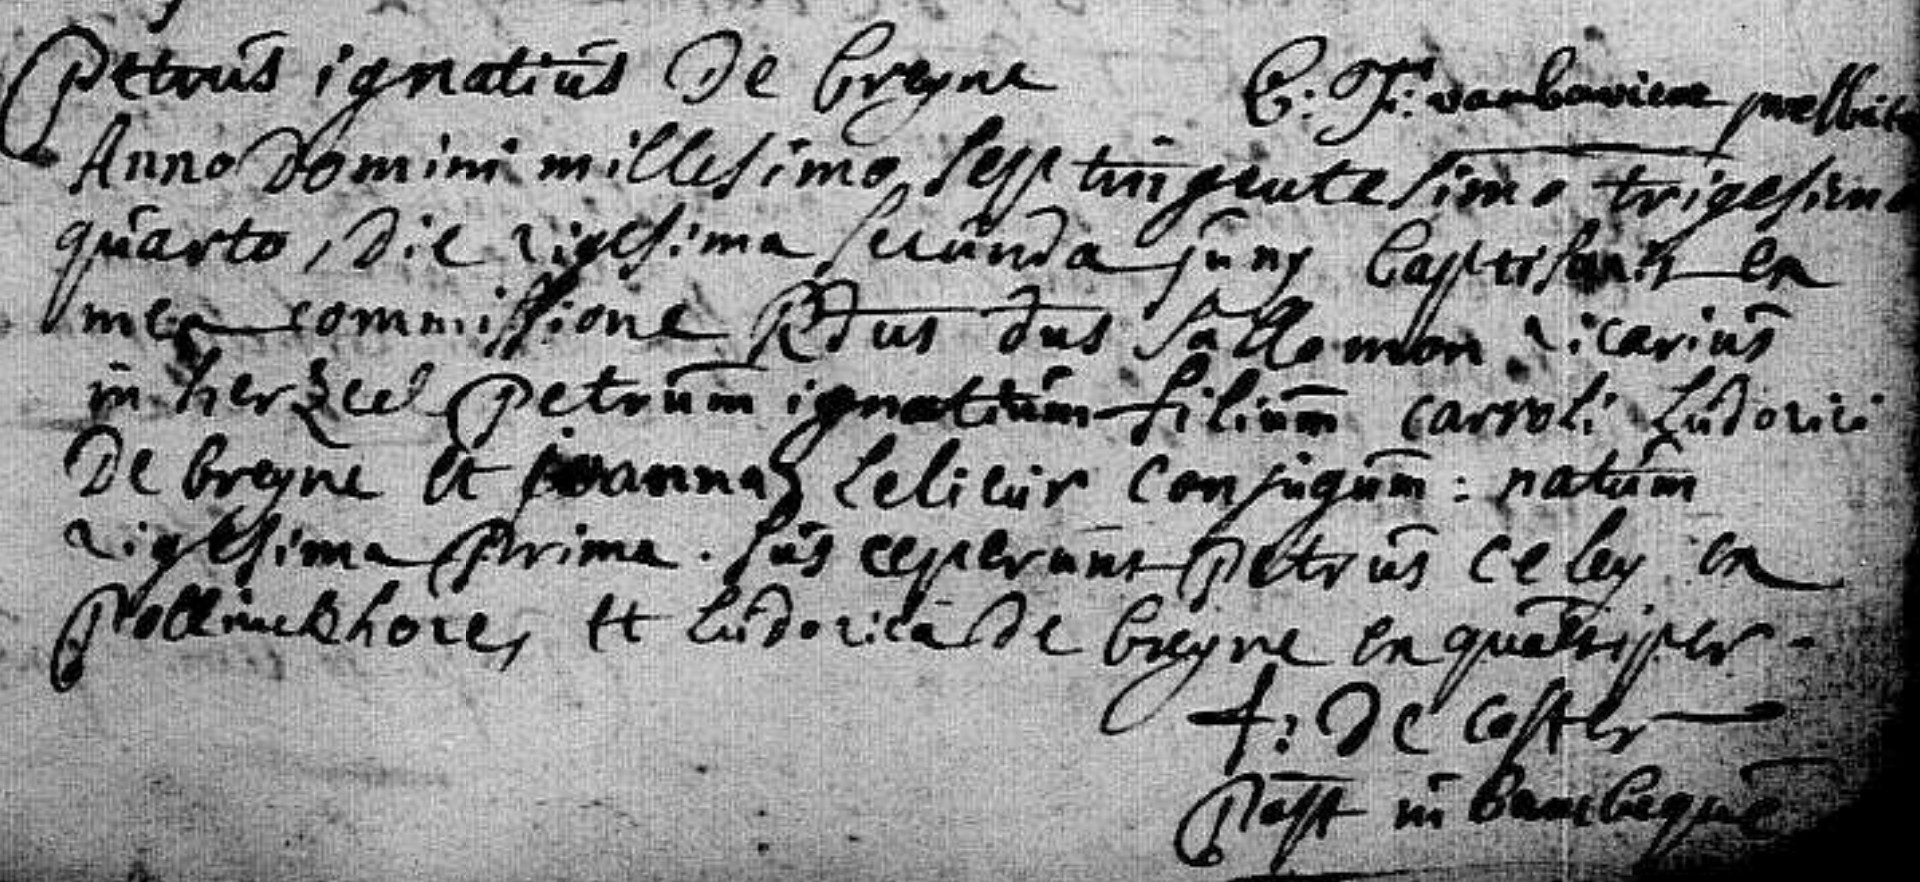 Petrus ignatius De breyne C: F: vanbaviere presbiter
Anno Domini millesimo septingentesimo trigesimo
quarto, Die vigesima secunda Juny baptisavit ex
mea commissione Rdus dus Sallomon vicarius
in herzeel Petrum ignatium filium carroli Ludovici
De breyne et Joannae Lelieur Conjugum: natum
vigesima prima. Sus ceperunt petrus celey ex
pollinckhove, et Ludovica De breyne ex quatriper -
f: De Coster
Past in bambeque